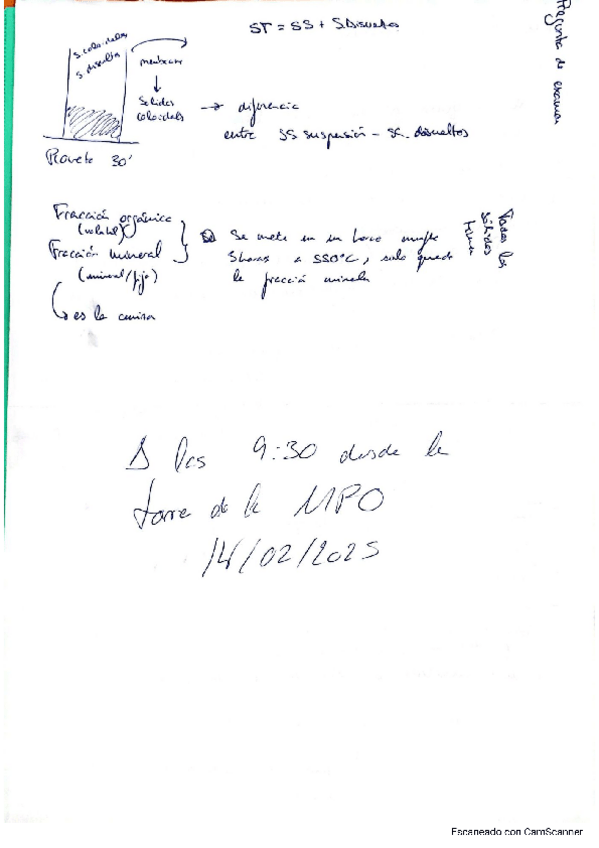 ST = SS + S.Disueltos
Pregunta de examen
S. coloidales
S. disueltos
membrana
↓
Sólidos
coloidales
→ diferencia
entre SS suspensión - SS. disueltos
Probeta 30'
Fracción orgánica
(volátil)
Fracción mineral
(mineral/fija)
↳ es la ceniza
Se mete en un horno mufla
5horas a 550°C, solo queda
la fracción mineral
Todos los
sólidos
tienen
A las 9:30 desde la
torre de la MPO
14/02/2025
Escaneado con CamScanner